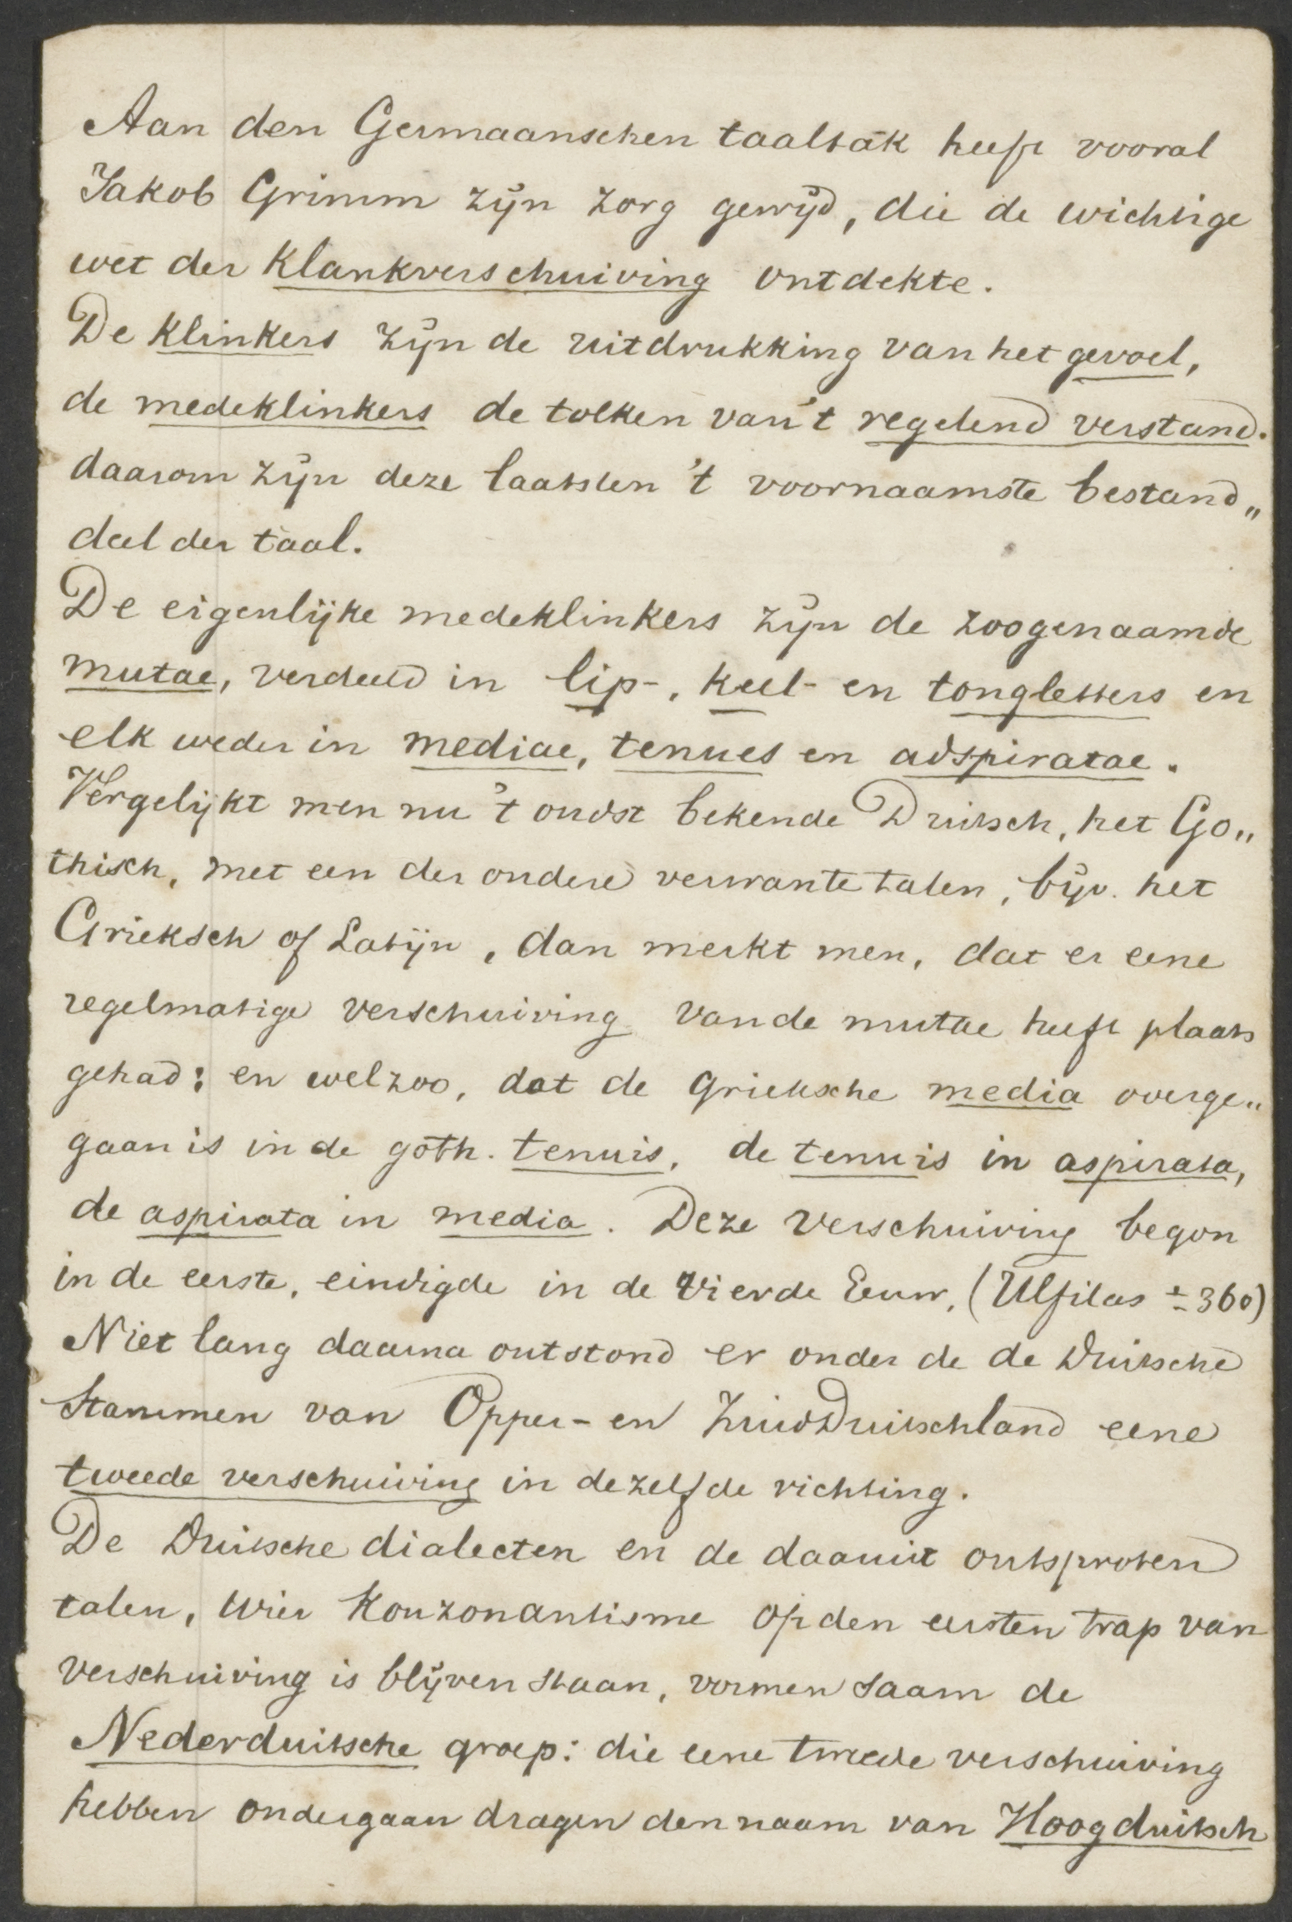 Aan den Germaanschen taaltak heeft vooral
Jakob Grimm zijn zorg gewijd, die de wichtige
wet der klankverschuiving ontdekte.
De klinkers zijn de uitdrukking van het gevoel,
de medeklinkers de tolken van 't regelend verstand.
daarom zijn deze laatsten 't voornaamste bestand„
deel der taal.
De eigenlijke medeklinkers zijn de zoogenaamde
mutae, verdeeld in lip-, keel- en tongletters en
elk weder in mediae, tenues en adspiratae.
Vergelijkt men nu 't oudst bekende Duitsch, het Go„
thisch, met een der ondere verwante talen, bijv. het
Grieksch of Latijn, dan merkt men, dat er eene
regelmatige verschuiving van de mutae heeft plaats
gehad: en wel zoo, dat de grieksche media overge„
gaan is in de goth. tenuis, de tenuis in aspirata,
de aspirata in media. Deze verschuiving begon
in de eerste, eindigde in de vierde Eeuw, (Ulfilas ± 360)
Niet lang daarna ontstond er onder de de Duitsche
Stammen van Opper- en ZuidDuitschland eene
tweede verschuiving in dezelfde richting.
De Duitsche dialecten en de daaruit ontsproten
talen, wier konzonantisme op den eersten trap van
verschuiving is blijven staan, vormen saam de
Nederduitsche groep: die eene tweede verschuiving
hebben ondergaan dragen den naam van Hoogduitsch